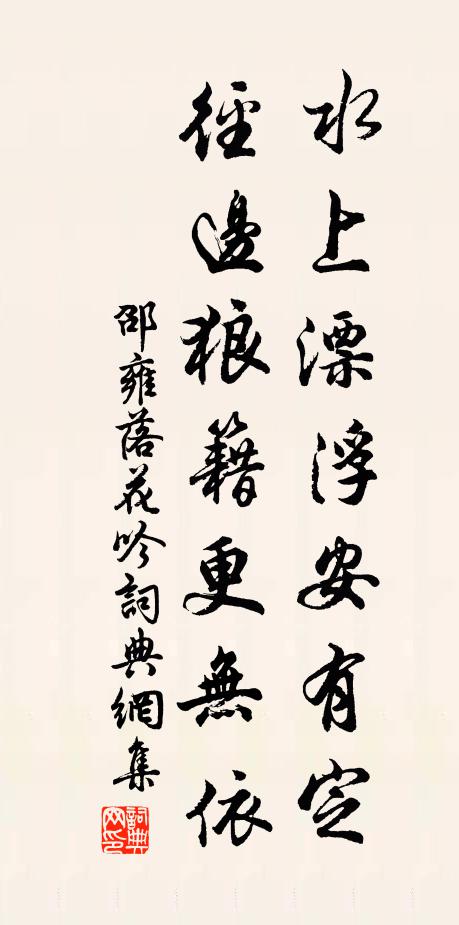 水上漂浮安有定
徑邊狼籍更無依
邵雍落花吟詞典網集
詞典网印